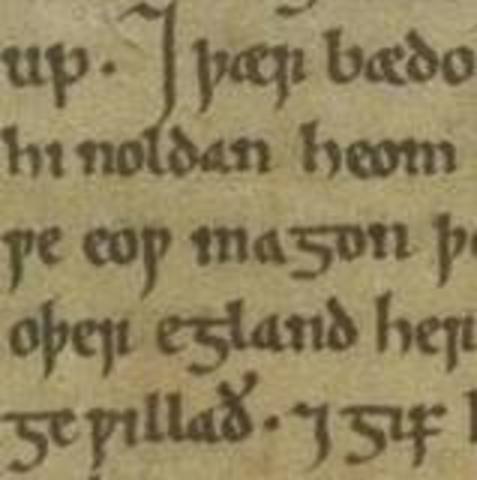 up. ⁊ þær bædo
hi noldan heom
ƿe eoƿ magon þe
oþer egland her
ge ƿillað. ⁊ gif